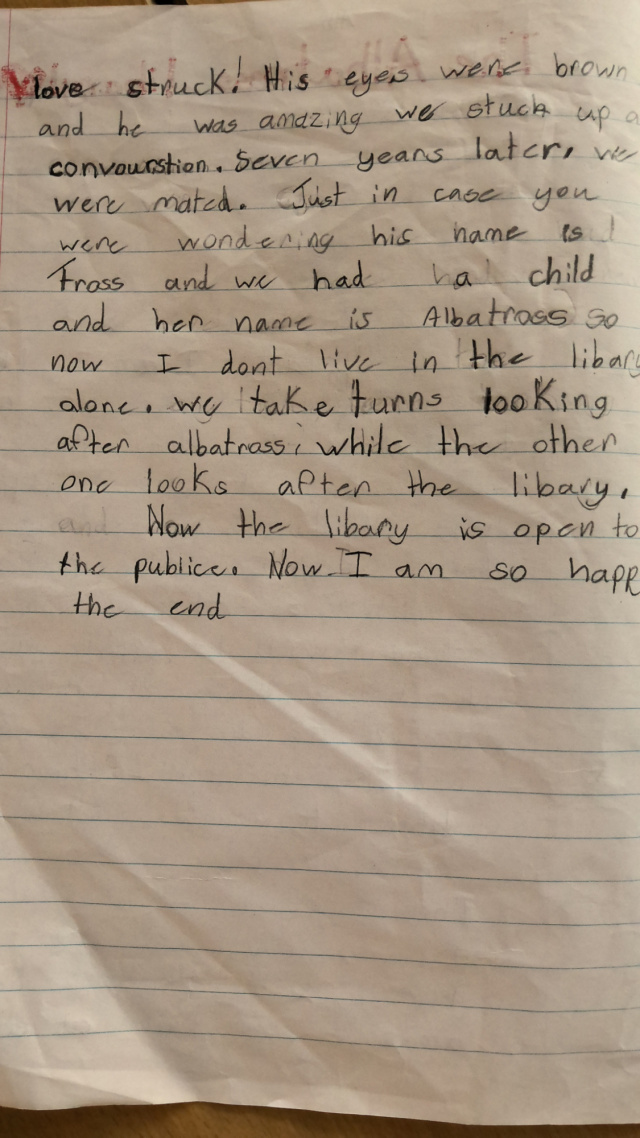 love struck! His eyes were brown
and he was amazing we stuck up a
convourstion. Seven years later, we
were mated. Just in case you
were wondering his name is
Fross and we had a child
and her name is Albatross so
now I dont live in the libary
alone. we take turns looking
after albatrass, while the other
one looks after the libary.
Now the libary is open to
the publice. Now I am so happ
the end